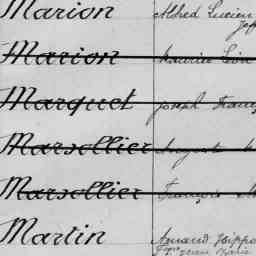 Marion Alfred Lucien
Marion Maurice Léon
Marquet Joseph
Marsollier Auguste
Marsollier François
Martin Armand